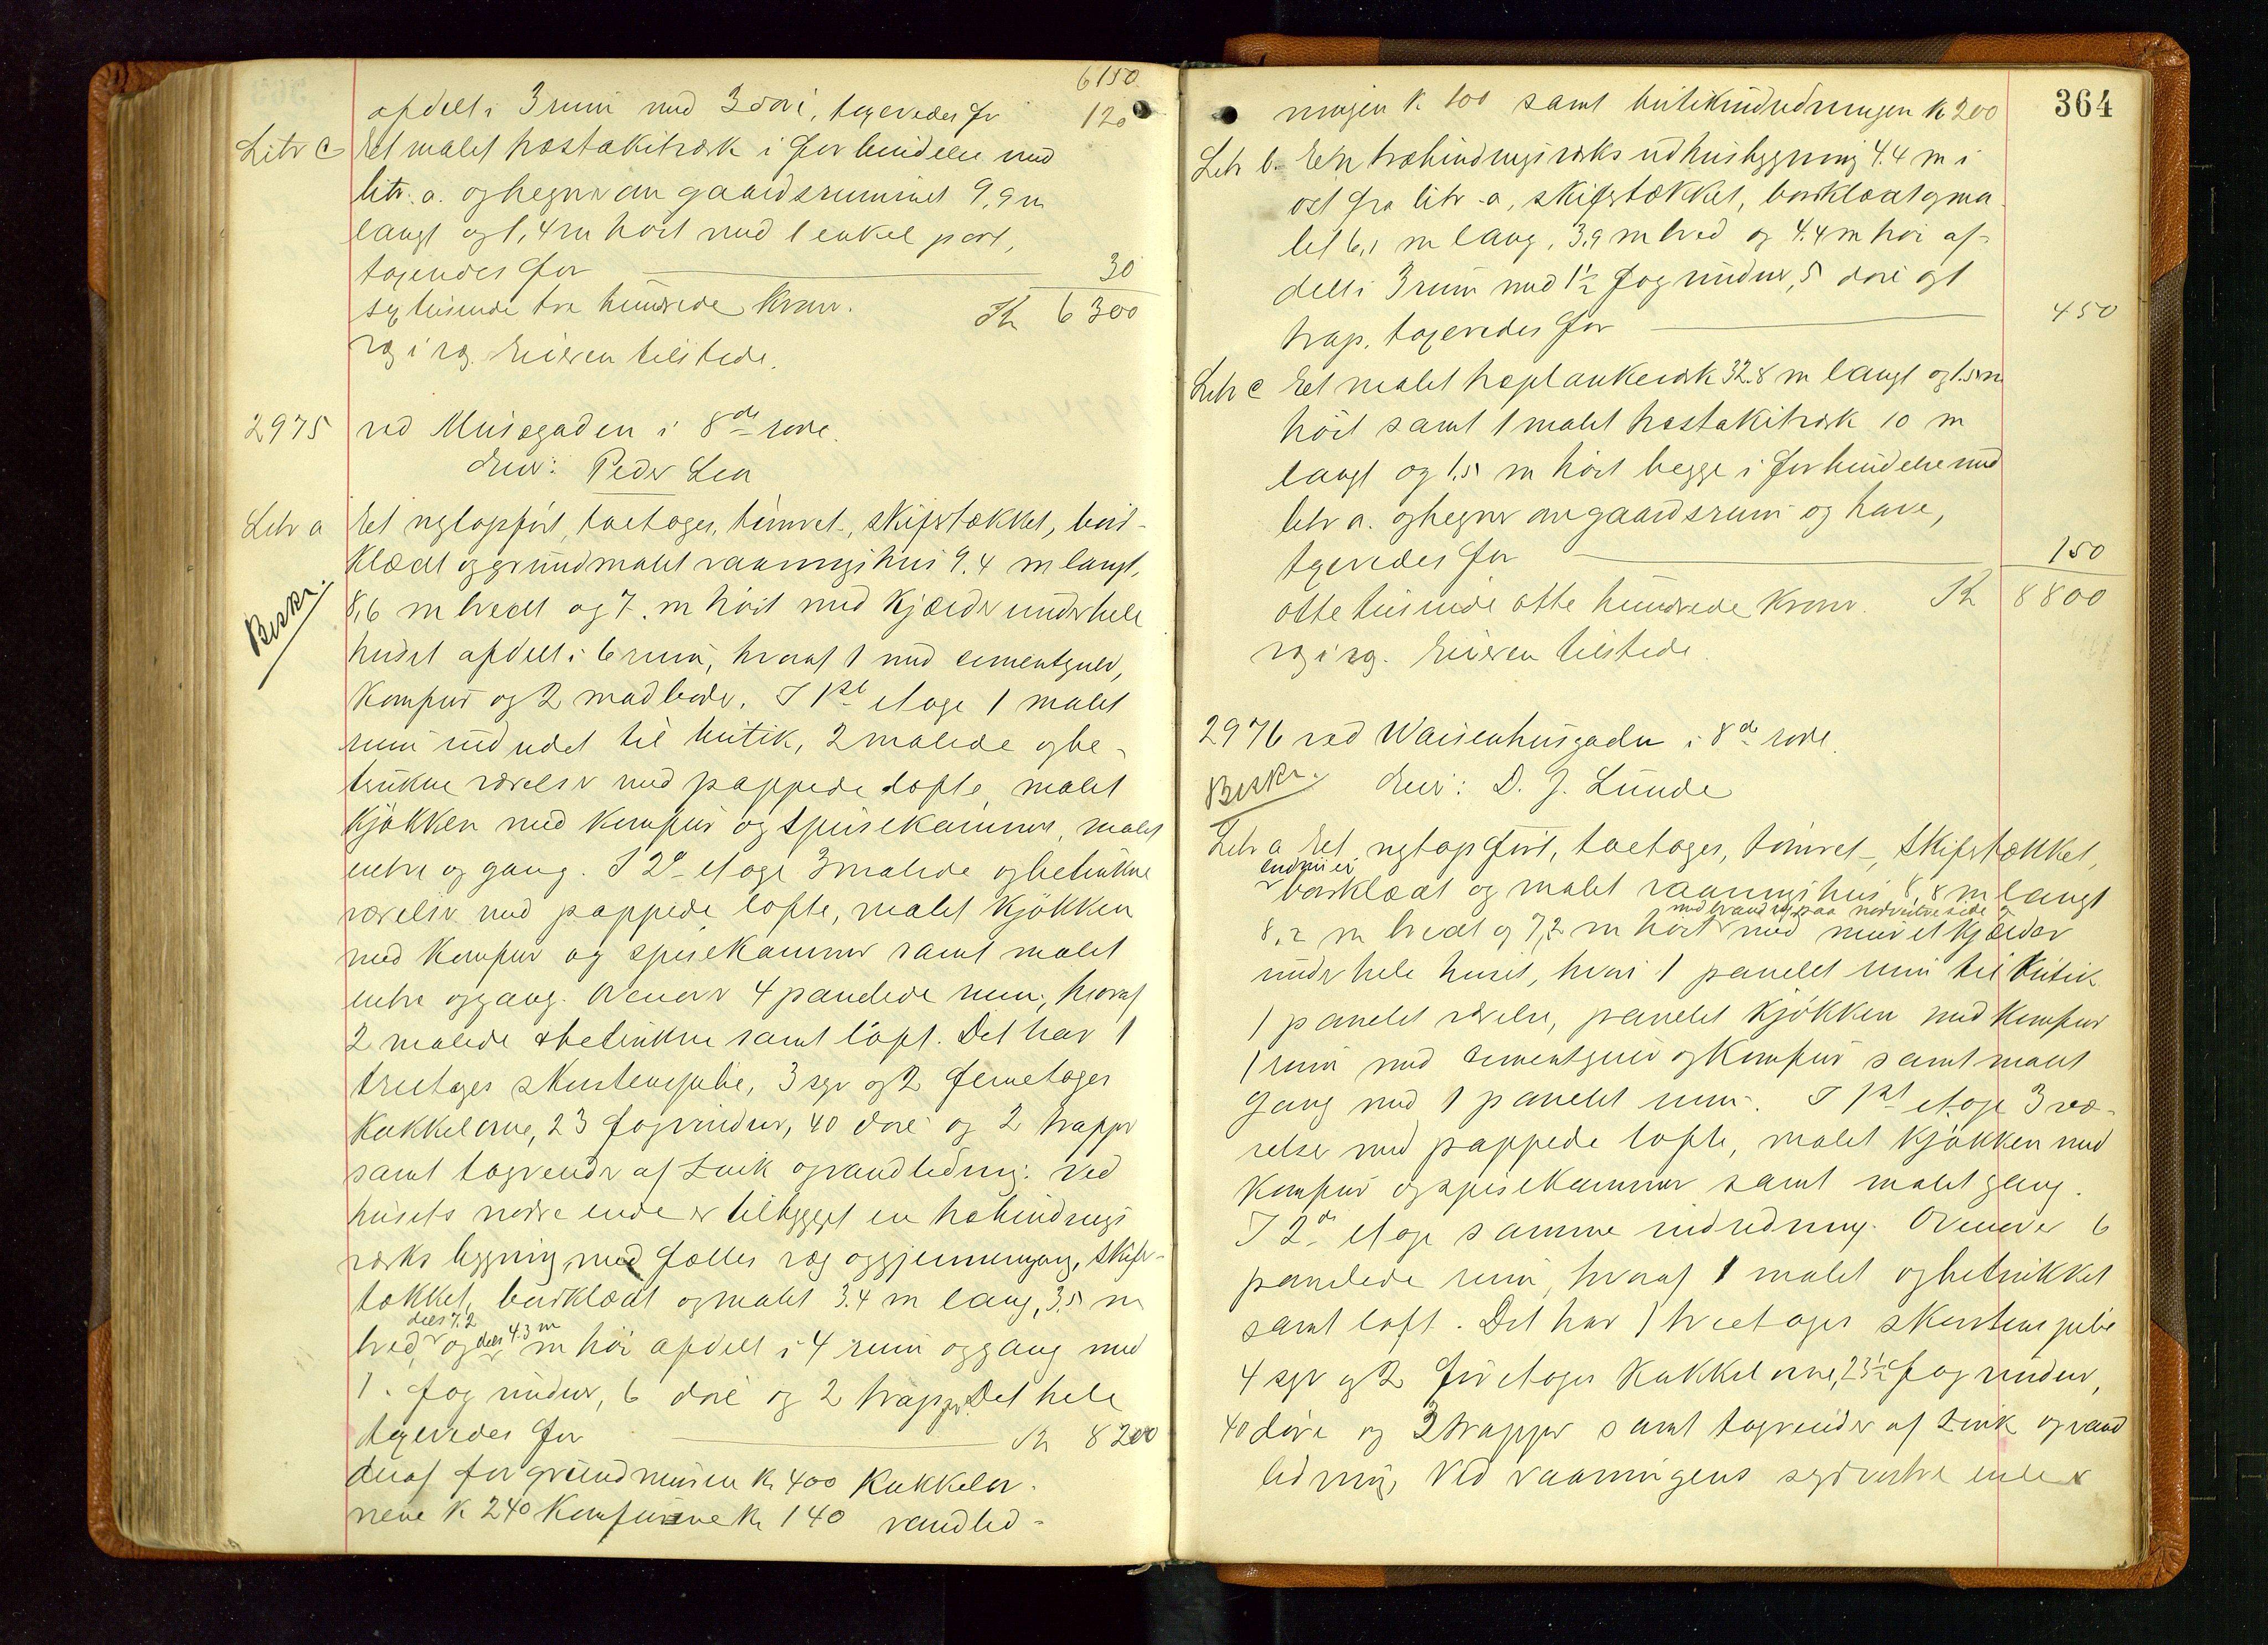 6150
afdelt i 3 rum med 3 döre, taxeredes for 120
Litr c Et malet træstakitværk i forbindelse med
litr. a. og hegner om gaardsrummet 9,9 m
langt og 1,4 m höit med 1 enkel port,
taxeredes for 30
sextusinde tre hundrede Kroner. Kr 6300
Eieren tilstede.
2975 ved Musegaden i 8de rode.
Eier: Peder Lea
Litr a Et nytopfört, toetages, tömret, skifertækket, bord-
klædt og grundmalet vaaningshus 9.4 m langt,
Beskr.
8,6 m bredt og 7. m höit med Kjælder under hele
huset afdelt i 6 rum, hvoraf 1 med cementgulv,
Komfur og 2 madboder. I 1ste etage 1 malet
rum indredet til butik, 2 malede og be-
trukne værelser med pappede lofte, malet
Kjökken med Komfur og spisekammer, malet
entre og gang. I 2den etage 3 malede og betrukne
værelser med pappede lofte, malet Kjökken
med Komfur og spisekammer samt malet
entre og gang. Ovenover 4 panelede rum, hvoraf
2 malede & betrukne samt loft. Det har 1
treetages skorstenspibe, 3 sex og 2 femetages
Kakkelovne, 23 fag vinduer, 40 döre og 2 trapper
samt tagrender af zink og vandledning. Ved
husets nordre ende er tilbygget en træbindings
værks bygning med fælles væg og gjennemgang, skifer-
tækket, bordklædt og malet 3.4 m lang, 3,5 m
dels 7.2 dels 4.3 m
bred og m höi afdelt i 4 rum og gang med
1. fag vinduer, 6 döre og 2 trapper. Det hele
taxeredes for Kr 8200
deraf for grundmuren Kr 400 Kakkelov-
nene K 240 Komfurene Kr 140 vandled-
364
ningen K 100 samt butikindredningen K 200
Litr b. En træbindingsværks udhusbygning 4.4 m i
öst fra litr a, skifertækket, bordklædt og ma
let 6,1 m lang, 3,9 m bred og 4.4 m höi af-
delt i 3 rum med 1½ fag vinduer, 5 döre og 1
trap. taxeredes for 450
Litr c Et malet træplankeværk 32.8 m langt og 1.5 m
höit samt 1 malet træstakitværk 10 m
langt og 1.5 m höit begge i forbindelse med
litr a. og hegner om gaardsrum og have,
taxeredes for 150
otte tusinde otte hundrede Kroner. Kr 8800
Eieren tilstede.
2976 ved Waisenhusgaden i 8de rode.
Beskr. Eier: D. J. Lunde
Litr a Et nytopfört, toetages, tömret, skifertækket,
endnu ei
bordklædt og malet vaaningshus 8,8 m langt
med brandvæg paa nordvestre side og
8,2 m bredt og 7,2 m höit med muret Kjælder
under hele huset, hvori 1 panelet rum til Butik
1 panelet værelse, panelet Kjökken med Komfur
1 rum med cementgulv og Komfur samt malet
gang med 1 panelet rum. I 1ste etage 3 væ-
relser med pappede lofte, malet Kjökken med
Komfur og spisekammer samt malet gang.
I 2den etage samme indredning. Ovenover 6
panelede rum, hvoraf 1 malet og betrukket
samt loft. Det har 1 treetages skorstenspibe
4 sex og 2 firetages Kakkelovne, 23½ fag vinduer,
40 döre og 3 trapper samt tagrender af zink og vand
ledning. Ved vaaningens sydvestre ende er